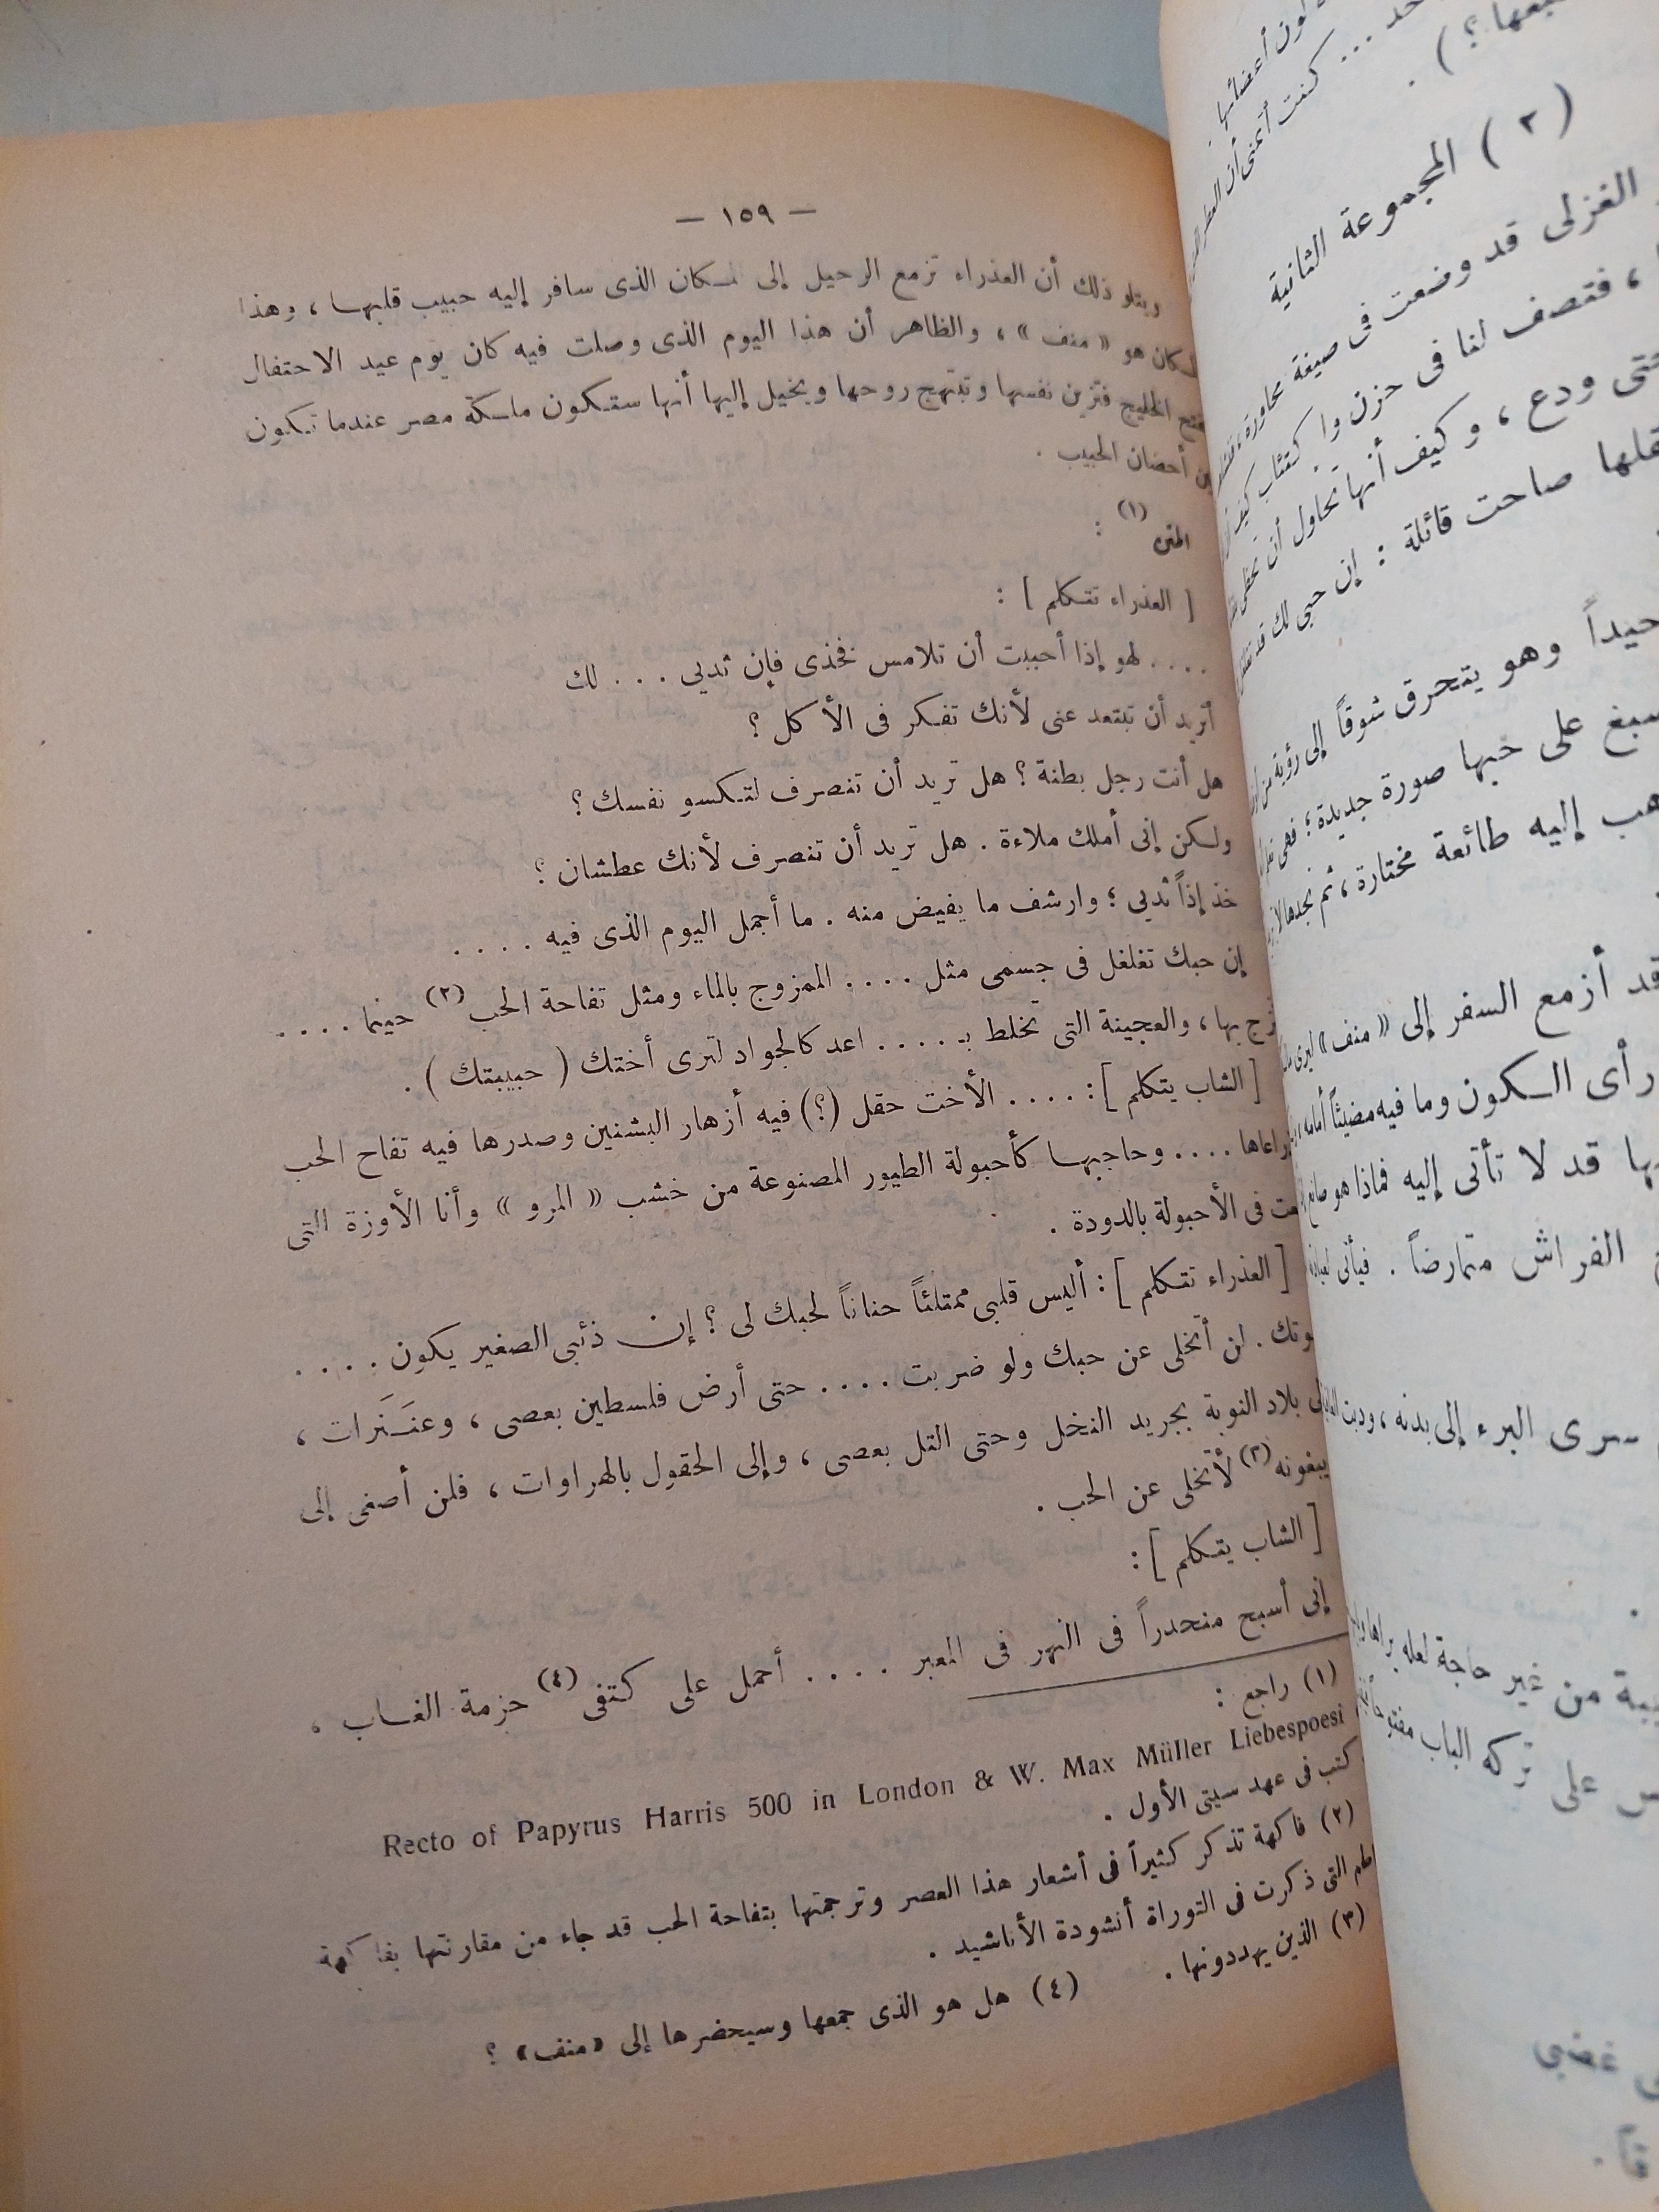 — ١٥٩ —
ويتلو ذلك أن العذراء تزمع الرحيل إلى المكان الذى سافر إليه حبيب قلبها ، وهذا
المكان هو « منف » ، والظاهر أن هذا اليوم الذى وصلت فيه كان يوم عيد الاحتفال
بفتح الخليج فتزين نفسها وتبتهج روحها ويخيل إليها أنها ستكون ملكة مصر عندما تكون
بين أحضان الحبيب .
المتن (١) :
[ العذراء تتكلم ] :
. . . . لهو إذا أحببت أن تلامس فخذى فإن ثديى . . . لك
أتريد أن تبتعد عنى لأنك تفكر فى الأكل ؟
هل أنت رجل بطنة ؟ هل تريد أن تنصرف لتكسو نفسك ؟
ولكن إنى أملك ملاءة . هل تريد أن تنصرف لأنك عطشان ؟
خذ إذاً ثديى ؛ وارشف ما يفيض منه . ما أجمل اليوم الذى فيه . . . .
إن حبك تغلغل فى جسمى مثل . . . . الممزوج بالماء ومثل تفاحة الحب (٢) حينما . . . .
تمزج بها ، والعجينة التى تخلط بـ . . . . اعد كالجواد لترى أختك ( حبيبتك ) .
[ الشاب يتكلم ] : . . . . الأخت حقل (؟) فيه أزهار البشنين وصدرها فيه تفاح الحب
ذراعاها . . . . وحاجبها كأحبولة الطيور المصنوعة من خشب « المرو » وأنا الأوزة التى
وقعت فى الأحبولة بالدودة .
[ العذراء تتكلم ] : أليس قلبى ممتلئاً حناناً لحبك لى ؟ إن ذئبى الصغير يكون . . . .
. لن أتخلى عن حبك ولو ضربت . . . . حتى أرض فلسطين بعصى ، وعنَـنَرات ،
وإلى بلاد النوبة بجريد النخل وحتى التل بعصى ، وإلى الحقول بالهراوات ، فلن أصغى إلى
يبغونه (٣) لأتخلى عن الحب .
[ الشاب يتكلم ] :
إنى أسبح منحدراً فى النهر فى المعبر . . . . أحمل على كتفى (٤) حزمة الغاب .
(١) راجع :
Recto of Papyrus Harris 500 in London & W. Max Müller Liebespoesi
كتب فى عهد سيتى الأول .
(٢) فاكهة تذكر كثيراً فى أشعار هذا العصر وترجمتها بتفاحة الحب قد جاء من مقارنتها بفاكهة
التى ذكرت فى التوراة أنشودة الأناشيد .
(٣) الذين يهددونها .
(٤) هل هو الذى جمعها وسيحضرها إلى «منف» ؟
لون أعضائها
. . . كنت أتمنى أن
( ٢ ) المجموعة الثانية
الغزلى قد وضعت فى صيغة محاورة
، فتصف لنا فى حزن واكتئاب كيف
ودع ، وكيف أنها تحاول أن تحظى
صاحت قائلة : إن حبى لك قد
وهو يتحرق شوقاً إلى رؤية
على حبها صورة جديدة ؛ فهى
إليه طائعة مختارة ، ثم نجدها
قد أزمع السفر إلى « منف » ليرى
رأى الكون وما فيه مضيئاً أمامه
قد لا تأتى إليه فماذا هو صانع
الفراش متمارضاً . فيأتى لعيادة
البرء إلى بدنه ، ودبت
من غير حاجة لعله يراها
على تركه الباب مفتوحاً
غضبى